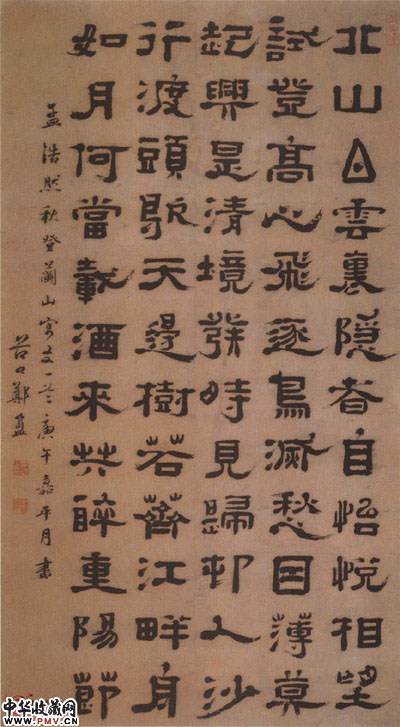 北山白雲裏隱者自怡悅相望
試登高心飛逐鳥滅愁因薄莫
起興是清境發時見歸邨人沙
行渡頭歇天邊樹若薺江畔身
如月何當載酒來共醉重陽節
孟浩然秋登蘭山寄友一首庚午嘉平月書
谷口鄭簠
中华收藏网
WWW.PMV.CN